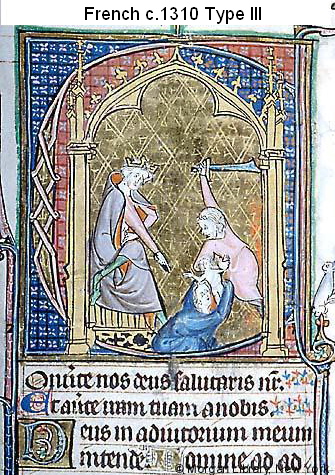 French c.1310 Type III
Onũte nos deus salutaris nr̃.
Et aũte iram tuam a nobis.
Deus in adiutorium meum
intende. Domine ad ad
© Morgan Library New York